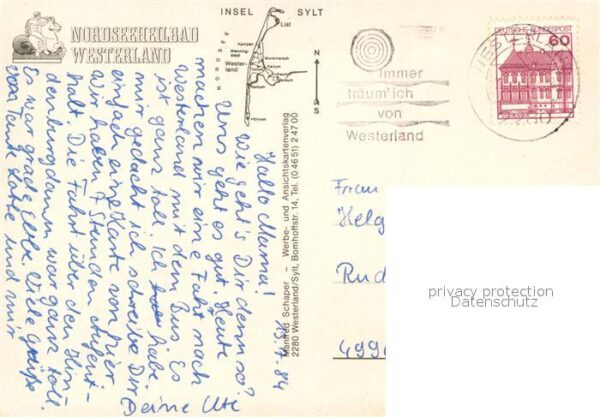 NORDSEEHEILBAD
WESTERLAND
INSEL SYLT
NORDSEE
List
Kampen
Wenning-
stedt
Wester-
land
Munkmarsch
Keitum
Rantum
Hörnum
N
S
immer
träum' ich
von
Westerland
DEUTSCHE BUNDESPOST
60
Manfred Schaper – Werbe- und Ansichtskartenverlag
2280 Westerland/Sylt, Bomhoffstr. 14, Tel. (0 46 51) 2 47 00
13.7.84
Hallo Mama!
Wie geht's Dir denn so?
Uns geht es gut. Heute
machen wir eine Fahrt nach
Westerland mit dem Bus. Es
ist ganz toll. Ich habe
mir gedacht ich schreibe Dir
einfach eine Karte von hier.
Wir haben 7 Stunden Aufent-
halt. Die Fahrt über den Hin-
denburgdamm war ganz toll.
Es war grad Ebbe. Viele Grüße
von Tante Lotte und mir
Deine Ute
Frau
Helg
Rud
4990
privacy protection
Datenschutz